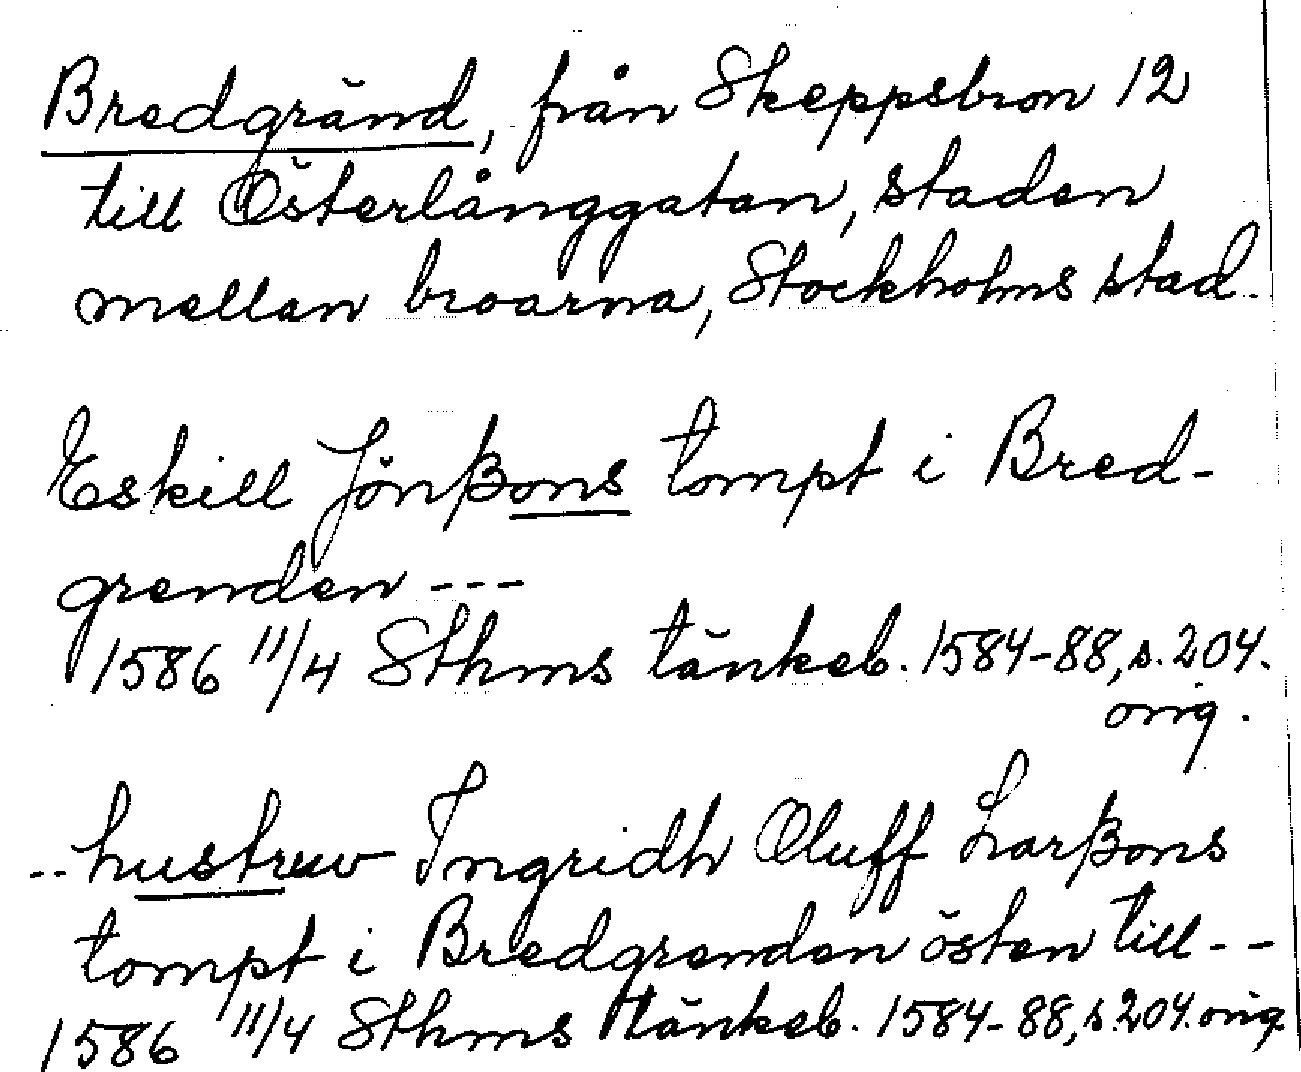 Bredgränd, från Skeppsbron 12
till Österlånggatan, staden
mellan broarna, Stockholms stad.
Eskill Jönßons tompt i Bred-
grenden ---
1586 11/4 Sthms tänkeb. 1584-88, s. 204.
orig.
-- hustruv Ingridh Oluff Larßons
tompt i Bredgrenden östen till --
1586 11/4 Sthms tänkeb. 1584-88, s. 204. orig.